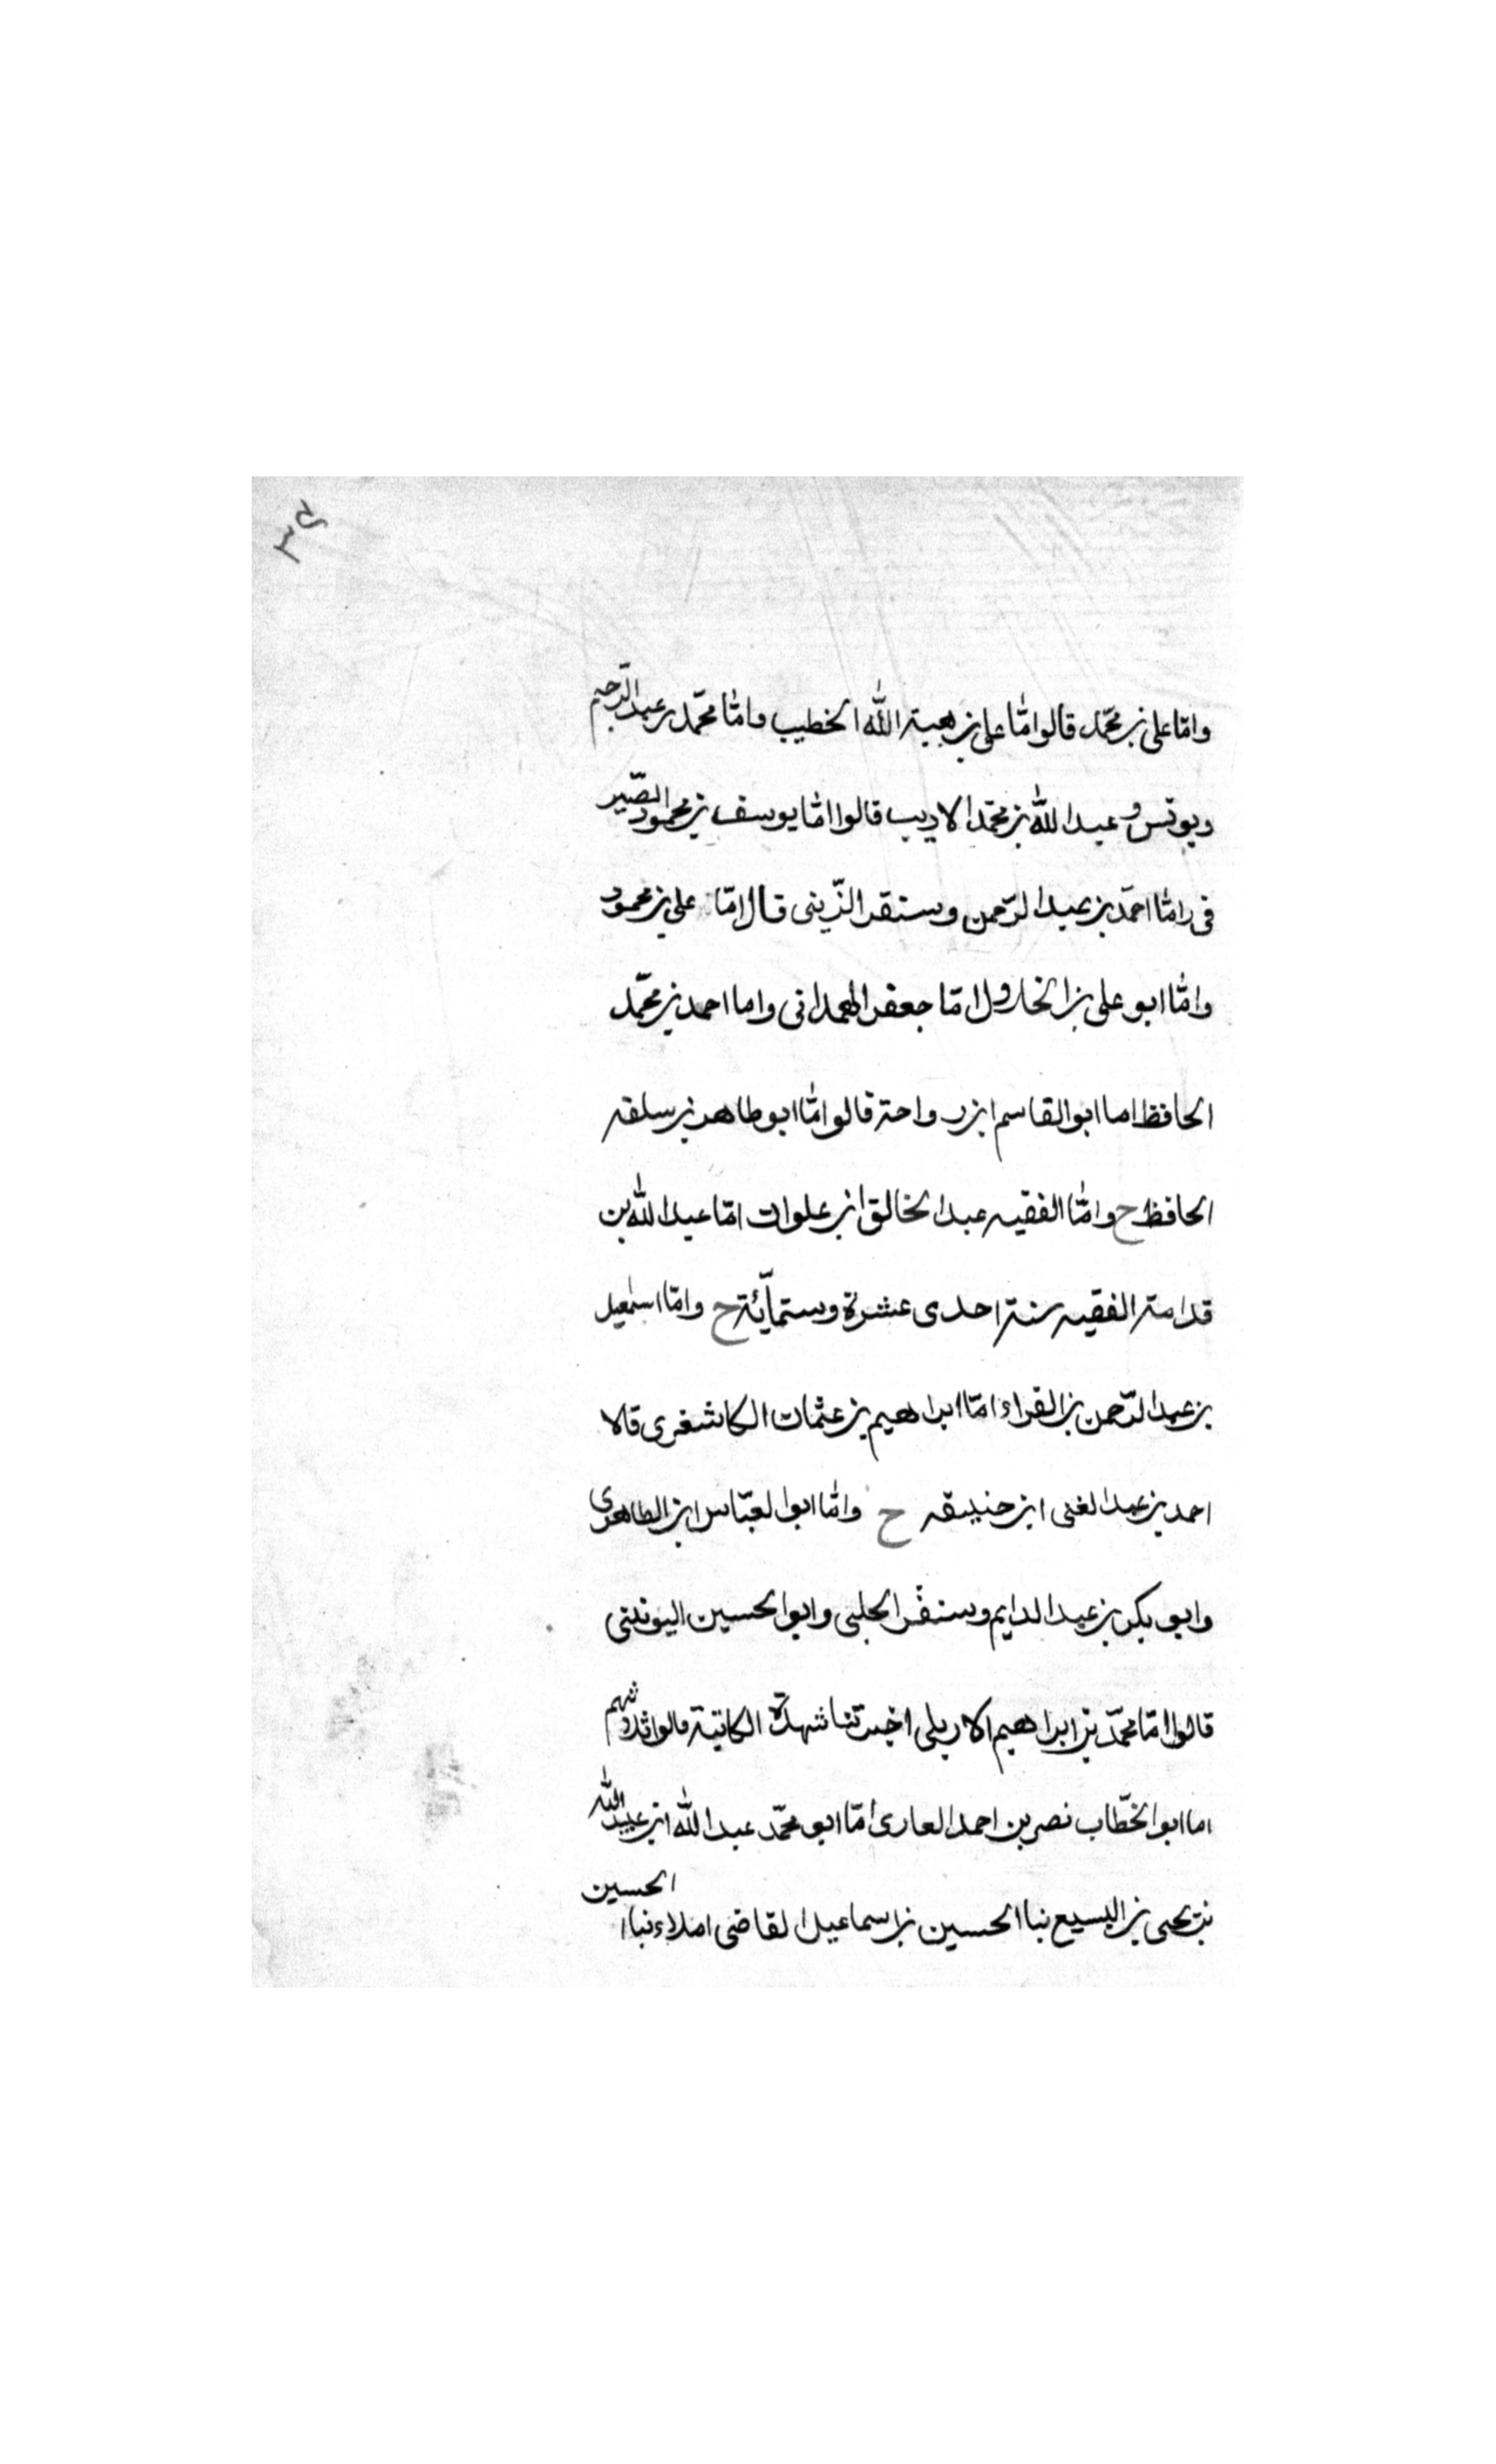 واما على بن محمد قالوا اما على بن هبة الله الخطيب واما محمد بن عبد الرحيم
ويونس وعبد الله بن محمد الاديب قالوا اما يوسف بن محمود الصير
فى واما احمد بن عبد الرحمن وسنقر الزينى قال اما على بن محمود
واما ابو على بن الخلال اما جعفر الهمدانى واما احمد بن محمد
الحافظ اما ابو القاسم ابن رواحة قالوا اما ابو طاهر بن سلفه
الحافظ ح واما الفقيه عبد الخالق ابن علوان اما عبد الله بن
قدامة الفقيه سنة احدى عشرة وستمائة ح واما اسمعيل
بن عبد الرحمن بن الفراء اما ابراهيم بن عثمان الكاشغرى قالا
احمد بن عبد الغنى ابن حنيفه ح واما ابو العباس ابن الطاهرى
وابو بكر بن عبد الدايم وسنقر الحلبى وابو الحسين اليونينى
قالوا اما محمد بن ابراهيم الاربلى اخبرتنا شهدة الكاتبة قالوا
اما ابو الخطاب نصر بن احمد القارى اما ابو محمد عبد الله ابن عبيد الله
بن يحى بن البسيع نبا الحسين بن اسماعيل القاضى املاء نبا الحسين